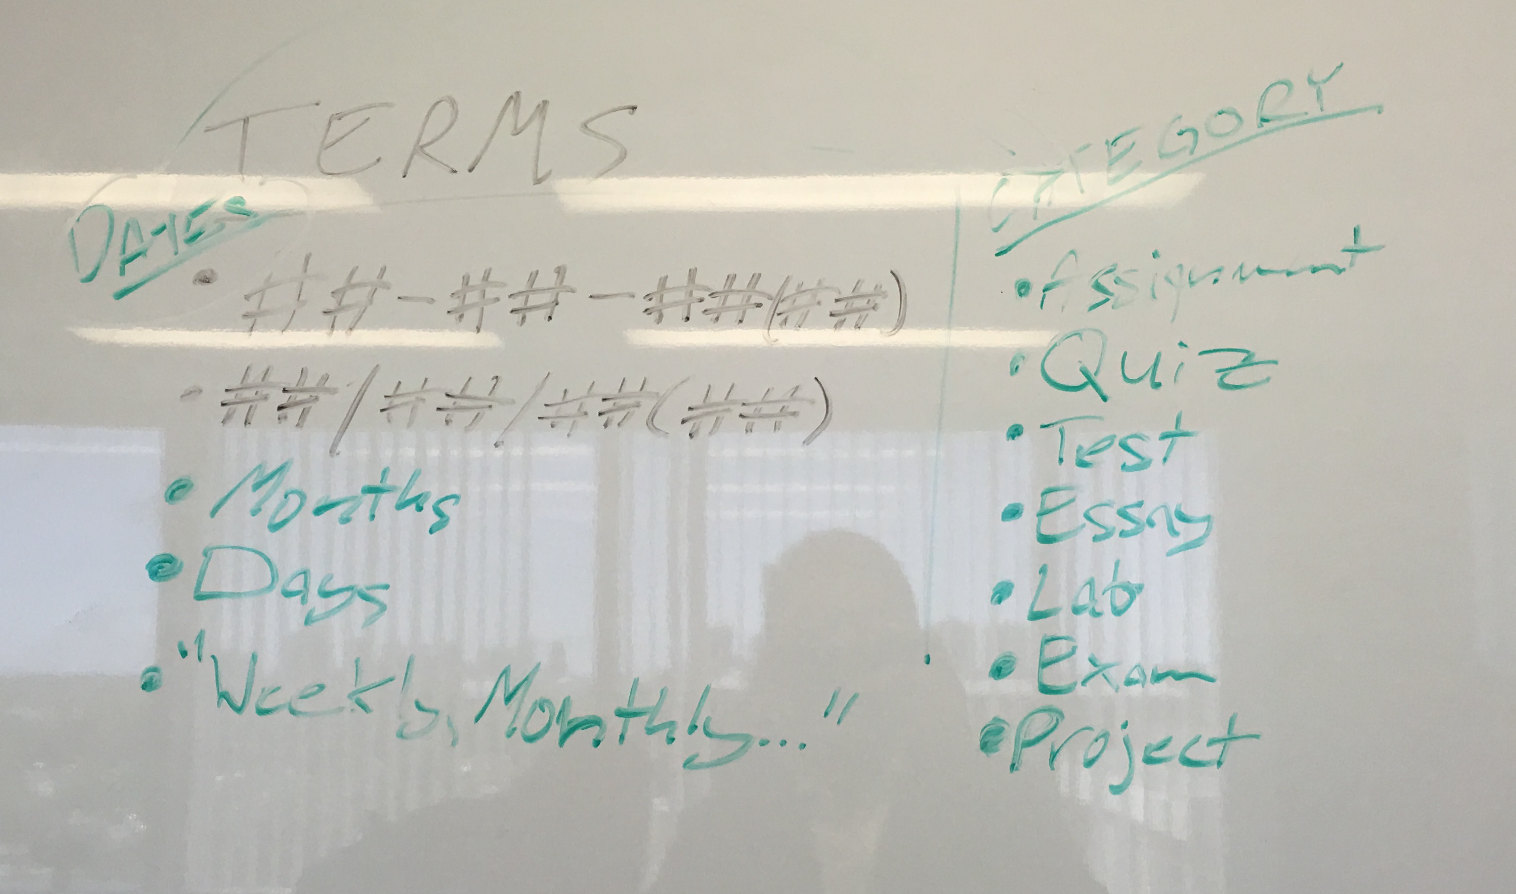 TERMS
DATES
• ##-##-##(##)
• ##/##/##(##)
• Months
• Days
• "Weekly, Monthly..."
CATEGORY
• Assignment
• Quiz
• Test
• Essay
• Lab
• Exam
• Project